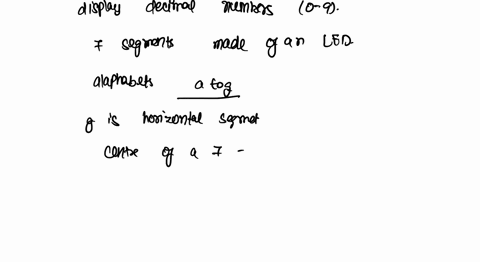 display decimal numbers (0-9).
7 segments made of an LED
alaphabets a to g
g is horizontal sgmet
centre of a 7 -